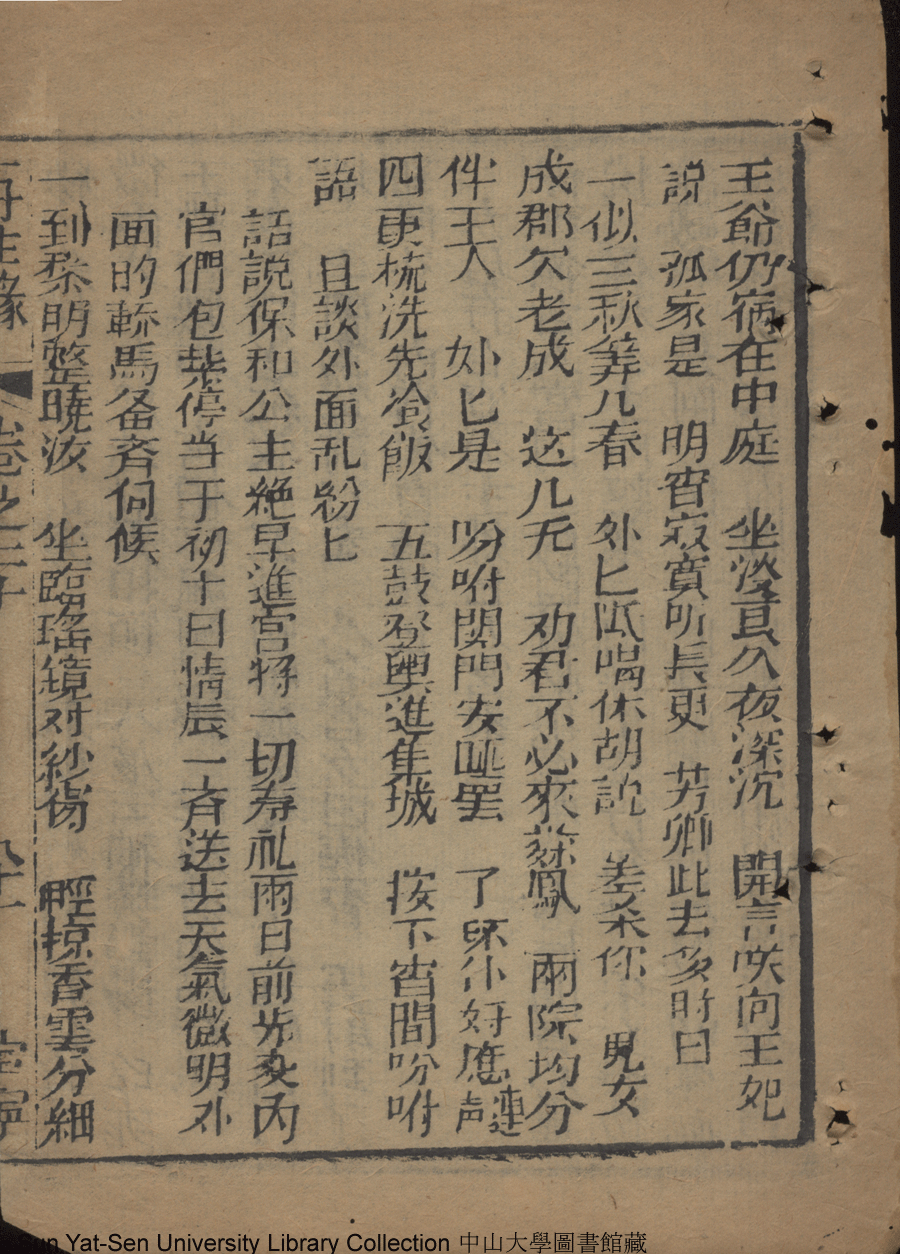 王爺仍宿在中庭　坐𣣱良久夜深沉　開言咲向王妃
說　孤家是　明宵寂寞听長更　芳卿此去多時日
一似三秋筭几春　外匕低喝休胡說　羞杀你　見女
成郡欠老成　这几天　劝君不必來叅鳳　兩院均分
伴王人　外匕是　吩咐関門安寢罢　了环们好應連声
四更梳洗先飡飯　五鼓登輿進集城　按下宵間吩咐
語　且談外面乱紛匕
話說保和公主絶早進宫将一切寿礼兩日前先交內
官們包紥停当于初十日情辰一斉送去天氣微明外
面的轎馬俻斉伺候
一到黎明整曉妝　坐臨瑶鏡对紗窗　輕掠香雲分細
再生縁　卷之二十　九十一　宝寧
Sun Yat-Sen University Library Collection 中山大學圖書館藏